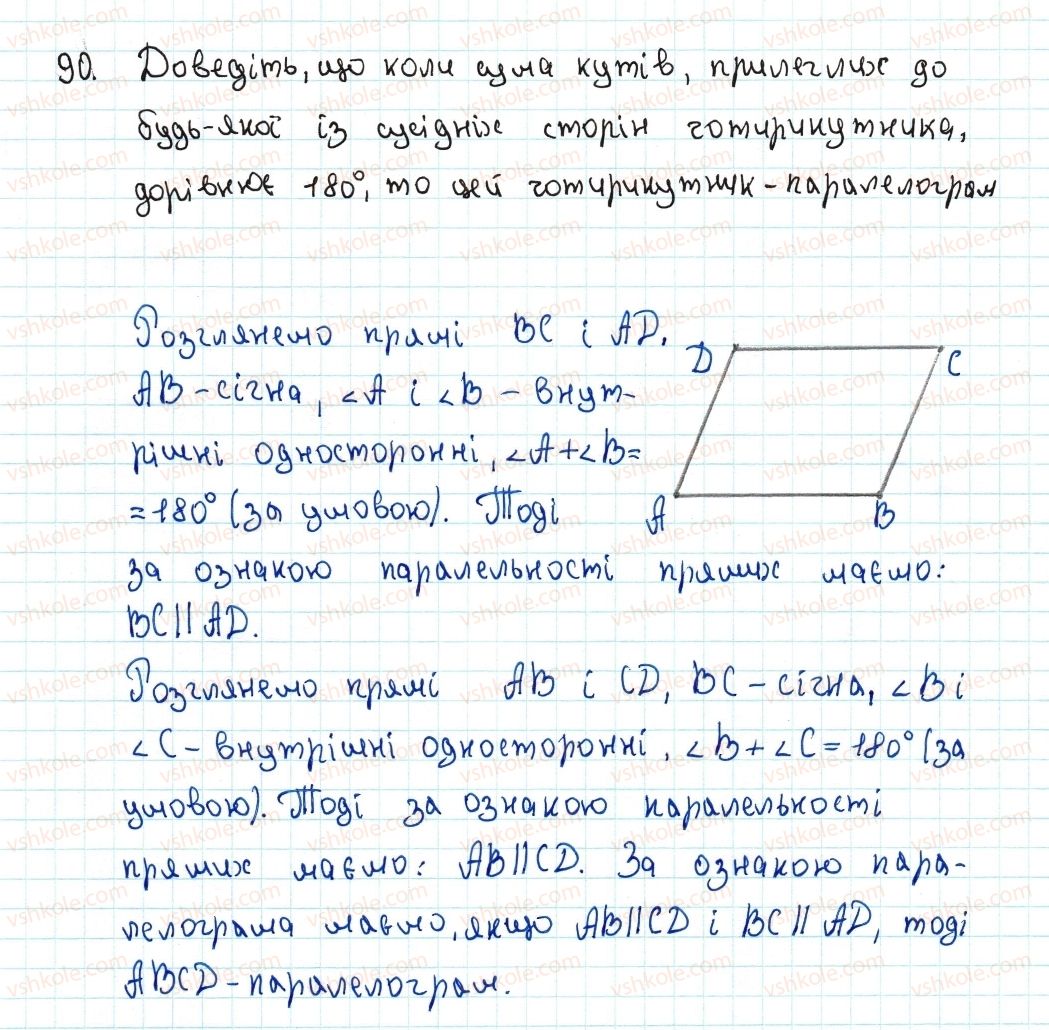 90. Доведіть, що коли сума кутів, прилеглих до
будь-якої із сусідніх сторін чотирикутника,
дорівнює 180°, то цей чотирикутник - паралелограм
Розглянемо прямі BC і AD.
AB - січна, ∠A і ∠B - внут-
рішні односторонні, ∠A + ∠B =
= 180° (за умовою). Тоді
за ознакою паралельності прямих маємо:
BC || AD.
D
C
A
B
Розглянемо прямі AB і CD, BC - січна, ∠B і
∠C - внутрішні односторонні, ∠B + ∠C = 180° (за
умовою). Тоді за ознакою паралельності
прямих маємо: AB || CD. За ознакою пара-
лелограма маємо, якщо AB || CD і BC || AD, тоді
ABCD - паралелограм.
vshkole.com